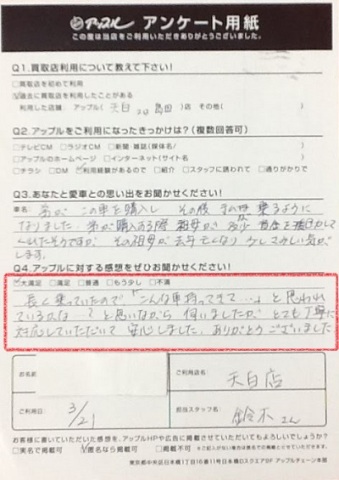 アップル アンケート用紙
この度は当店をご利用いただきありがとうございました。
Q1.買取店利用について教えて下さい!
□買取店を初めて利用
☑過去に買取店を利用したことがある
利用した店舗: アップル( 天白 )店 その他( )
Q2.アップルをご利用になったきっかけは?(複数回答可)
□テレビCM □ラジオCM □新聞・雑誌(媒体名/ )
□アップルのホームページ □インターネット(サイト名 )
□チラシ □DM ☑利用経験があるので □紹介 □スタッフに誘われて □通りがかりで
Q3.あなたと愛車との思い出をお聞かせください!
車名: 弟が この車を購入し その後 私が 乗るように
なりました。弟が購入する際 祖母が 多少 資金を援助して
くれたそうですが その祖母が去年亡くなり 少しさみしい気が
します。
Q4.アップルに対する感想をぜひお聞かせください!
☑大満足 □満足 □普通 □もう少し □不満
長く乗っていたので「こんな車持ってきて…」と思われ
ているかな…?と思いながら 伺いましたが とても丁寧に
対応していただいて 安心しました。ありがとうございました
お名前
ご利用店名
天白店
ご利用日
3/21
担当スタッフ名
鈴木さん
お客様に書いていただいた感想を、アップルHPや広告に掲載させていただいてもよろしいでしょうか?
□実名で掲載可 ☑匿名なら掲載可 □掲載不可
東京都中央区日本橋1丁目16番11号日本橋Dスクエア5F アップルチェーン本部